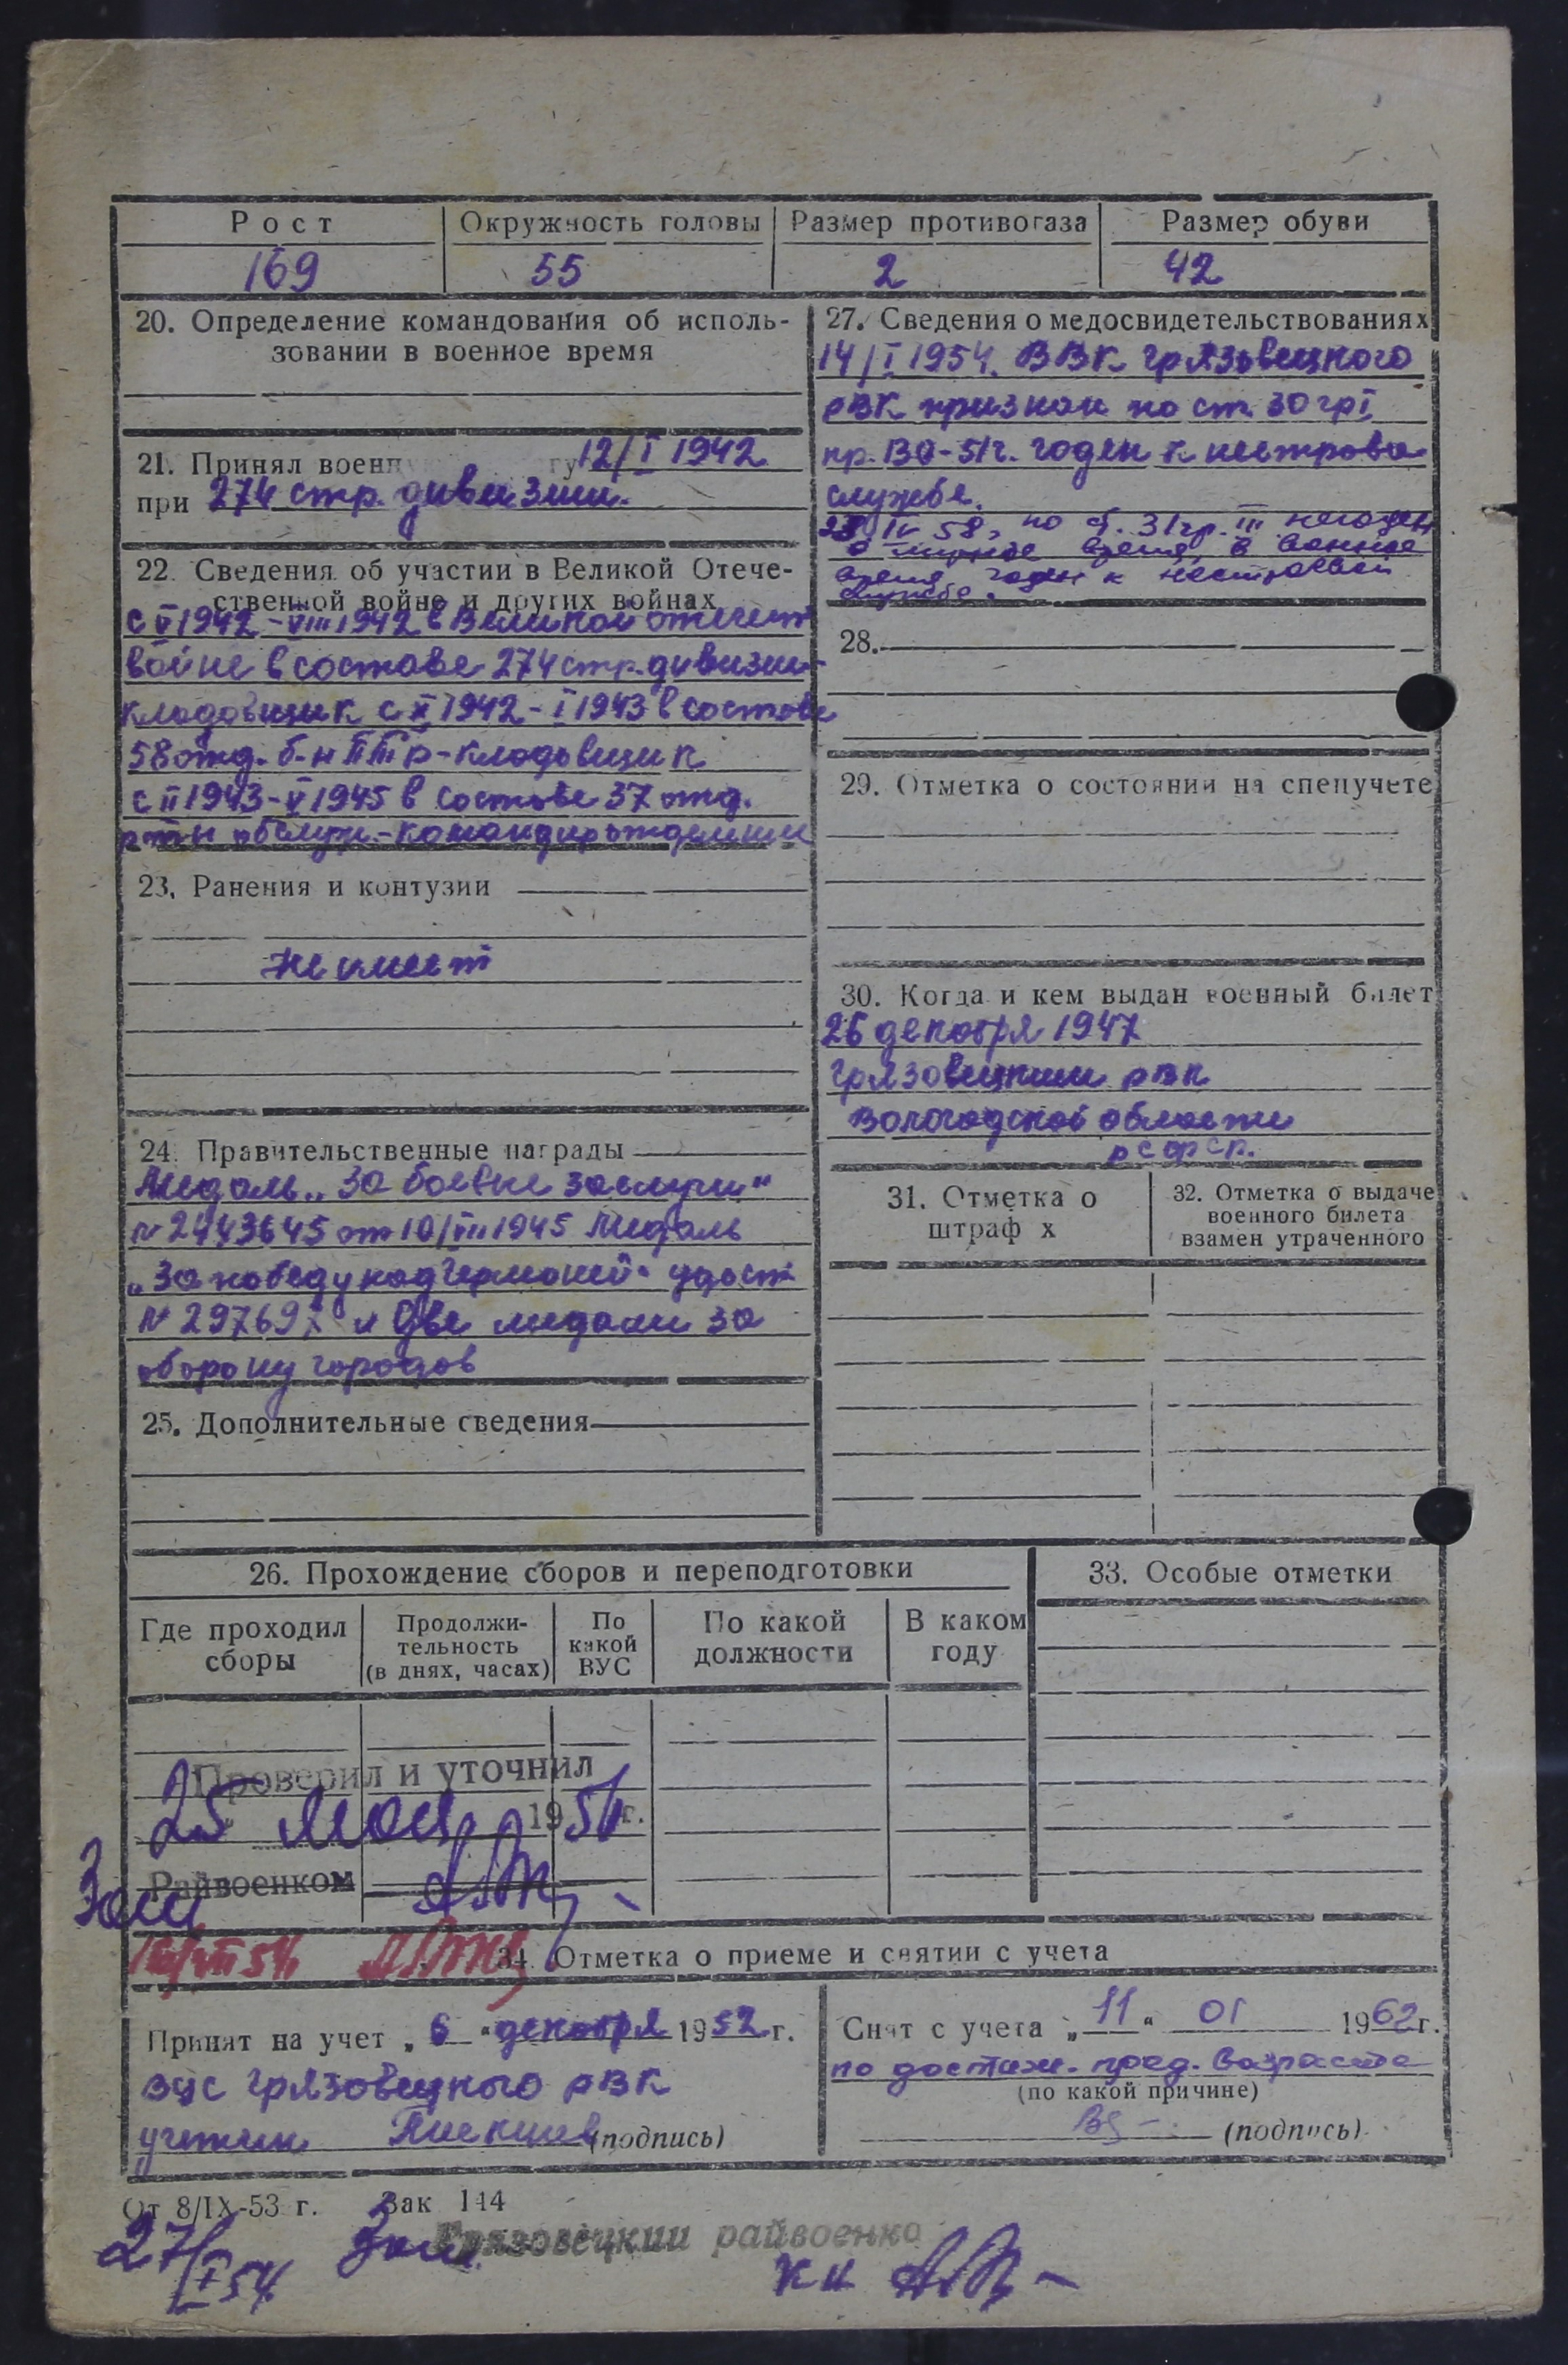 Рост Окружность головы Размер противогаза Размер обуви
169 55 2 42
20. Определение командования об исполь-
зовании в военное время
21. Принял воен гу 12/I 1942
при 274 стр. дивизии.
22. Сведения об участии в Великой Отече-
ственной войне и других войнах
с V 1942 - VIII 1942 в Великой отечест
войне в составе 274 стр. дивизии-
кладовщик с X 1942 - I 1943 в составе
58 отд. б-н ПТР - кладовщик
с II 1943 - V 1945 в составе 37 отд.
роты обслуж. - командир отделения
23. Ранения и контузии
Не имеет
24. Правительственные награды
Медаль „За боевые заслуги"
№ 2443645 от 10/VIII 1945 Медаль
„За победу над Германией" удост
№ 297697 и Две медали за
оборону городов
25. Дополнительные сведения
27. Сведения о медосвидетельствованиях
14/I 1954. ВВК Грязовецкого
РВК признан по ст. 30 гр I
пр. ВО-51г. годен к нестроево.
службе.
28 IV 58, по ст. 31 гр. III негоден
в мирное время, в военное
время годен к нестроевой
службе.
28.
29. Отметка о состоянии на спецучете
30. Когда и кем выдан военный билет
26 декабря 1947
Грязовецким РВК
Вологодской области
РСФСР.
31. Отметка о
штраф х
32. Отметка о выдаче
военного билета
взамен утраченного
26. Прохождение сборов и переподготовки
Где проходил
сборы
Продолжи-
тельность
(в днях, часах)
По
какой
ВУС
По какой
должности
В каком
году
33. Особые отметки
Проверил и уточнил
25 мая 1954 г.
Райвоенком
34. Отметка о приеме и снятии с учета
Принят на учет „6" декабря 1952 г.
ВУС Грязовецкого РВК
(подпись)
Снят с учета „11" 01 1962 г.
по достиж. пред. возраста
(по какой причине)
(подпись)
От 8/IX-53 г. Зак 144
Грязовецкий райвоенко
27/I 54